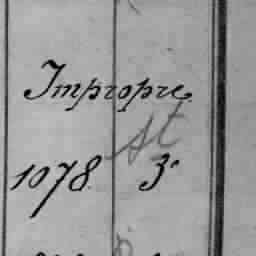 Impropre
st
1078 3°